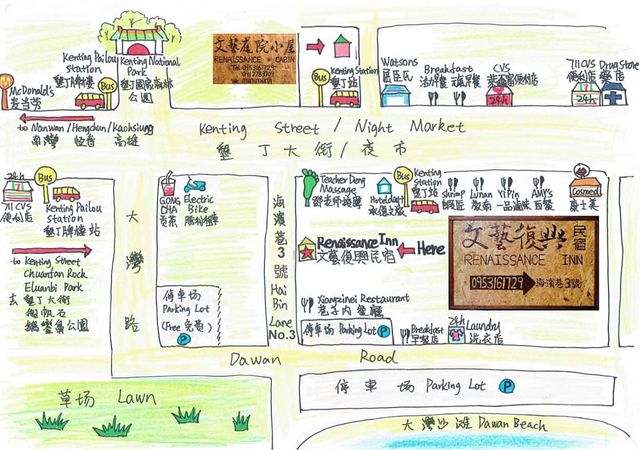 Kenting Pailou
Station
墾丁牌樓
站
Bus
McDonald's
麥當勞
Kenting National
Park
墾丁國家森林
公園
文藝庭院小屋
RENAISSANCE CABIN
Bus
Kenting Station
墾丁站
Watsons
屈臣氏
Breakfast
CVS
24h
711 CVS
便利店
24h
Drug Store
藥店
to Nanwan/Hengchun/Kaohsiung
南灣 恆春 高雄
Kenting Street / Night Market
墾丁大街/夜市
24h
711 CVS
便利店
Bus
Kenting Pailou
Station
墾丁牌樓站
to Kenting Street
Chuanfan Rock
Eluanbi Park
去墾丁大街
船帆石
鵝鑾鼻公園
大灣路
GONG
CHA
貢茶
Electric
Bike
停車場
Parking Lot
(Free 免費)
P
海濱巷3號 Hai Bin Lane No.3
Teacher Deng
Massage
鄧老師按摩
Bus
Hotel dart
Kenting
Station
墾丁站
shrimp
蝦匠
Lunan
YiPin
一品滷味
AMY's
Cosmed
康士美
Renaissance Inn
文藝復興民宿
Here
文藝復興民宿
RENAISSANCE INN
0953161729 海濱巷3號
Xiangzinei Restaurant
巷子內餐廳
停車場 Parking Lot
P
Breakfast
早餐店
24h
Laundry
洗衣店
Dawan Road
草场 Lawn
停車場 Parking Lot
P
大灣沙灘 Dawan Beach